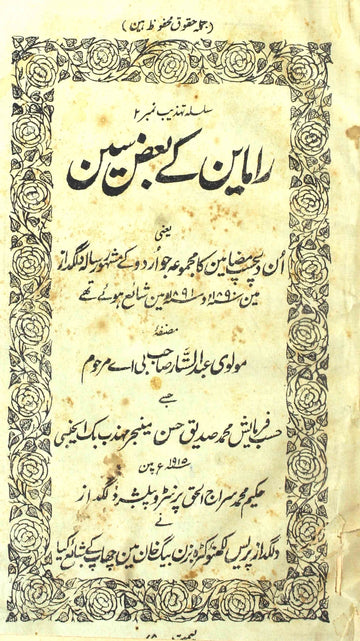 (جملہ حقوق محفوظ ہین)
سلسلہ تہذیب نمبر ۲
راماین کے بعض سین
یعنی
اُن دلچسپ مضامین کا مجموعہ جو اُردو کے مشہور رسالہ دلگداز
مین ۱۸۹۰ء و ۱۸۹۱ء مین شائع ہوئے تھے
مصنفہٗ
مولوی عبدالستار صاحب بی اے مرحوم
جسے
حسب فرمایش محمد صدیق حسن مینیجر مہذب بک ایجنسی
۱۹۱۵ء مین
حکیم محمد سراج الحق پرنٹر و پبلشر دلگداز
نے
دلگداز پریس لکھنؤ کٹرہ بزن بیگ خان مین چھاپ کے شائع کیا
قیمت